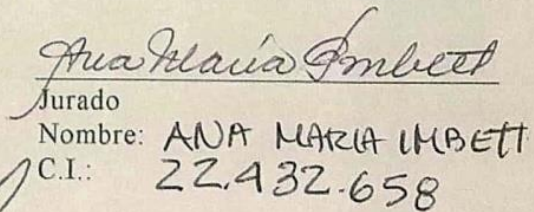 Ana Maria Imbett
Jurado
Nombre: ANA MARIA IMBETT
C.I.: 22.432.658